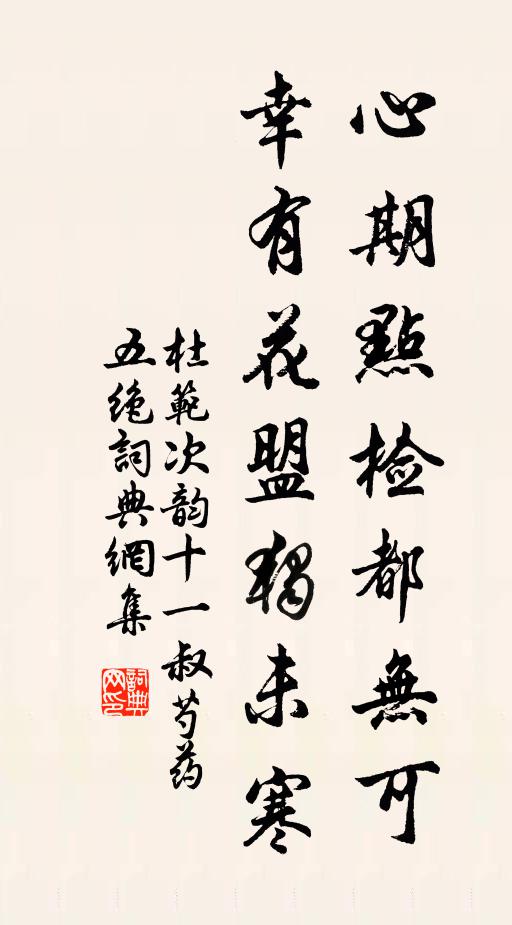 心期點檢都無可
幸有花盟獨未寒
杜範次韵十一叔芍药
五绝詞典網集
詞典
网印